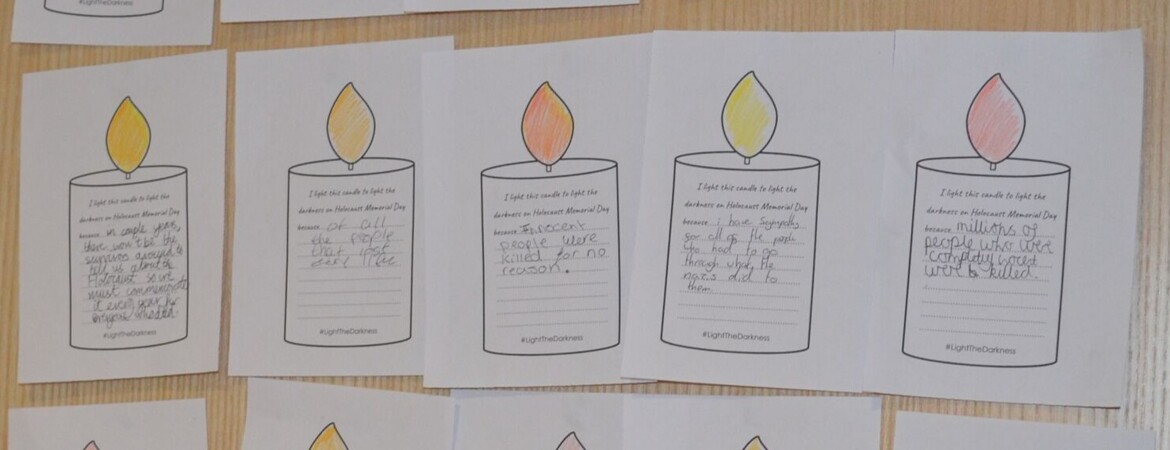 #LightTheDarkness
I light this candle to light the
darkness on Holocaust Memorial Day
because in couple years,
there won't be the
survivors around to
tell us about the
Holocaust so we
must commemorate
it every year for
everyone who died.
#LightTheDarkness
I light this candle to light the
darkness on Holocaust Memorial Day
because of all
the people
that lost
life
#LightTheDarkness
I light this candle to light the
darkness on Holocaust Memorial Day
because Innocent
people were
killed for no
reason.
#LightTheDarkness
I light this candle to light the
darkness on Holocaust Memorial Day
because i have Sympathy
for all of the people
who had to go
through what the
nazis did to
them
#LightTheDarkness
I light this candle to light the
darkness on Holocaust Memorial Day
because millions of
people who were
were killed.
#LightTheDarkness